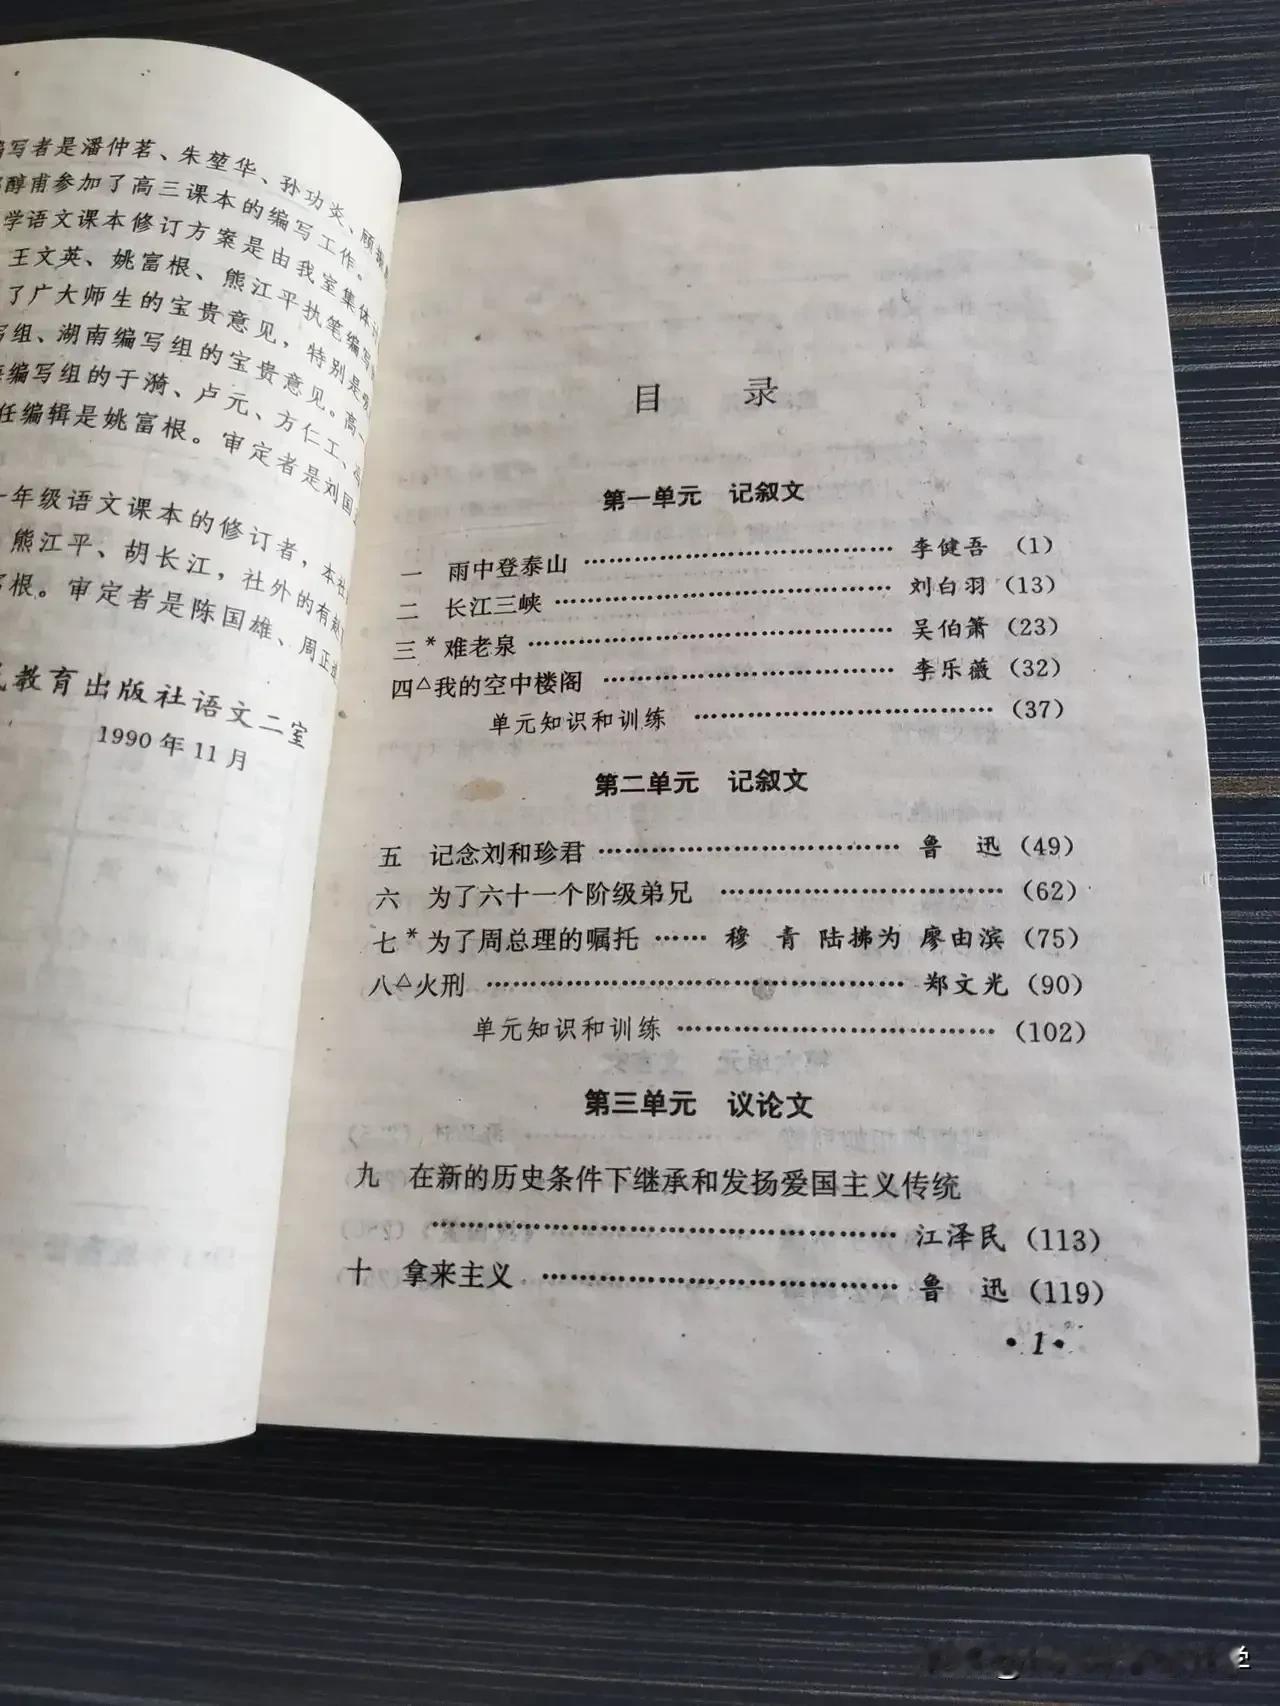 编写者是潘仲茗、朱堃华、孙功炎、顾振
醇甫参加了高三课本的编写工作。
学语文课本修订方案是由我室集体
王文英、姚富根、熊江平执笔编写
了广大师生的宝贵意见，特别是
写组、湖南编写组的宝贵意见。高一
编写组的于漪、卢元、方仁工、
任编辑是姚富根。审定者是刘国
一年级语文课本的修订者，本社
熊江平、胡长江，社外的有
富根。审定者是陈国雄、周正
教育出版社语文二室
1990年11月
目 录
第一单元 记叙文
一 雨中登泰山 ………………………… 李健吾 (1)
二 长江三峡 ………………………… 刘白羽 (13)
三*难老泉 ………………………… 吴伯箫 (23)
四△我的空中楼阁 ………………………… 李乐薇 (32)
单元知识和训练 ………………………… (37)
第二单元 记叙文
五 记念刘和珍君 ………………………… 鲁 迅 (49)
六 为了六十一个阶级弟兄 ………………………… (62)
七*为了周总理的嘱托 …… 穆 青 陆拂为 廖由滨 (75)
八△火刑 ………………………… 郑文光 (90)
单元知识和训练 ………………………… (102)
第三单元 议论文
九 在新的历史条件下继承和发扬爱国主义传统
………………………… 江泽民 (113)
十 拿来主义 ………………………… 鲁 迅 (119)
•1•